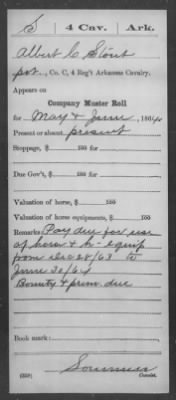 S | 4 Cav. | Ark.
Albert C Stout
pvt., Co. C, 4 Reg't Arkansas Cavalry.
Appears on
Company Muster Roll
for May & June, 1864
Present or absent present
Stoppage, $ 100 for
Due Gov't, $ 100 for
Valuation of horse, $ 100
Valuation of horse equipments, $ 100
Remarks: Pay due for use
of horse & h- equip
from Dec 28/63 to
June 30/64
Bounty & prem. due
Book mark:
(358)
Copyist.